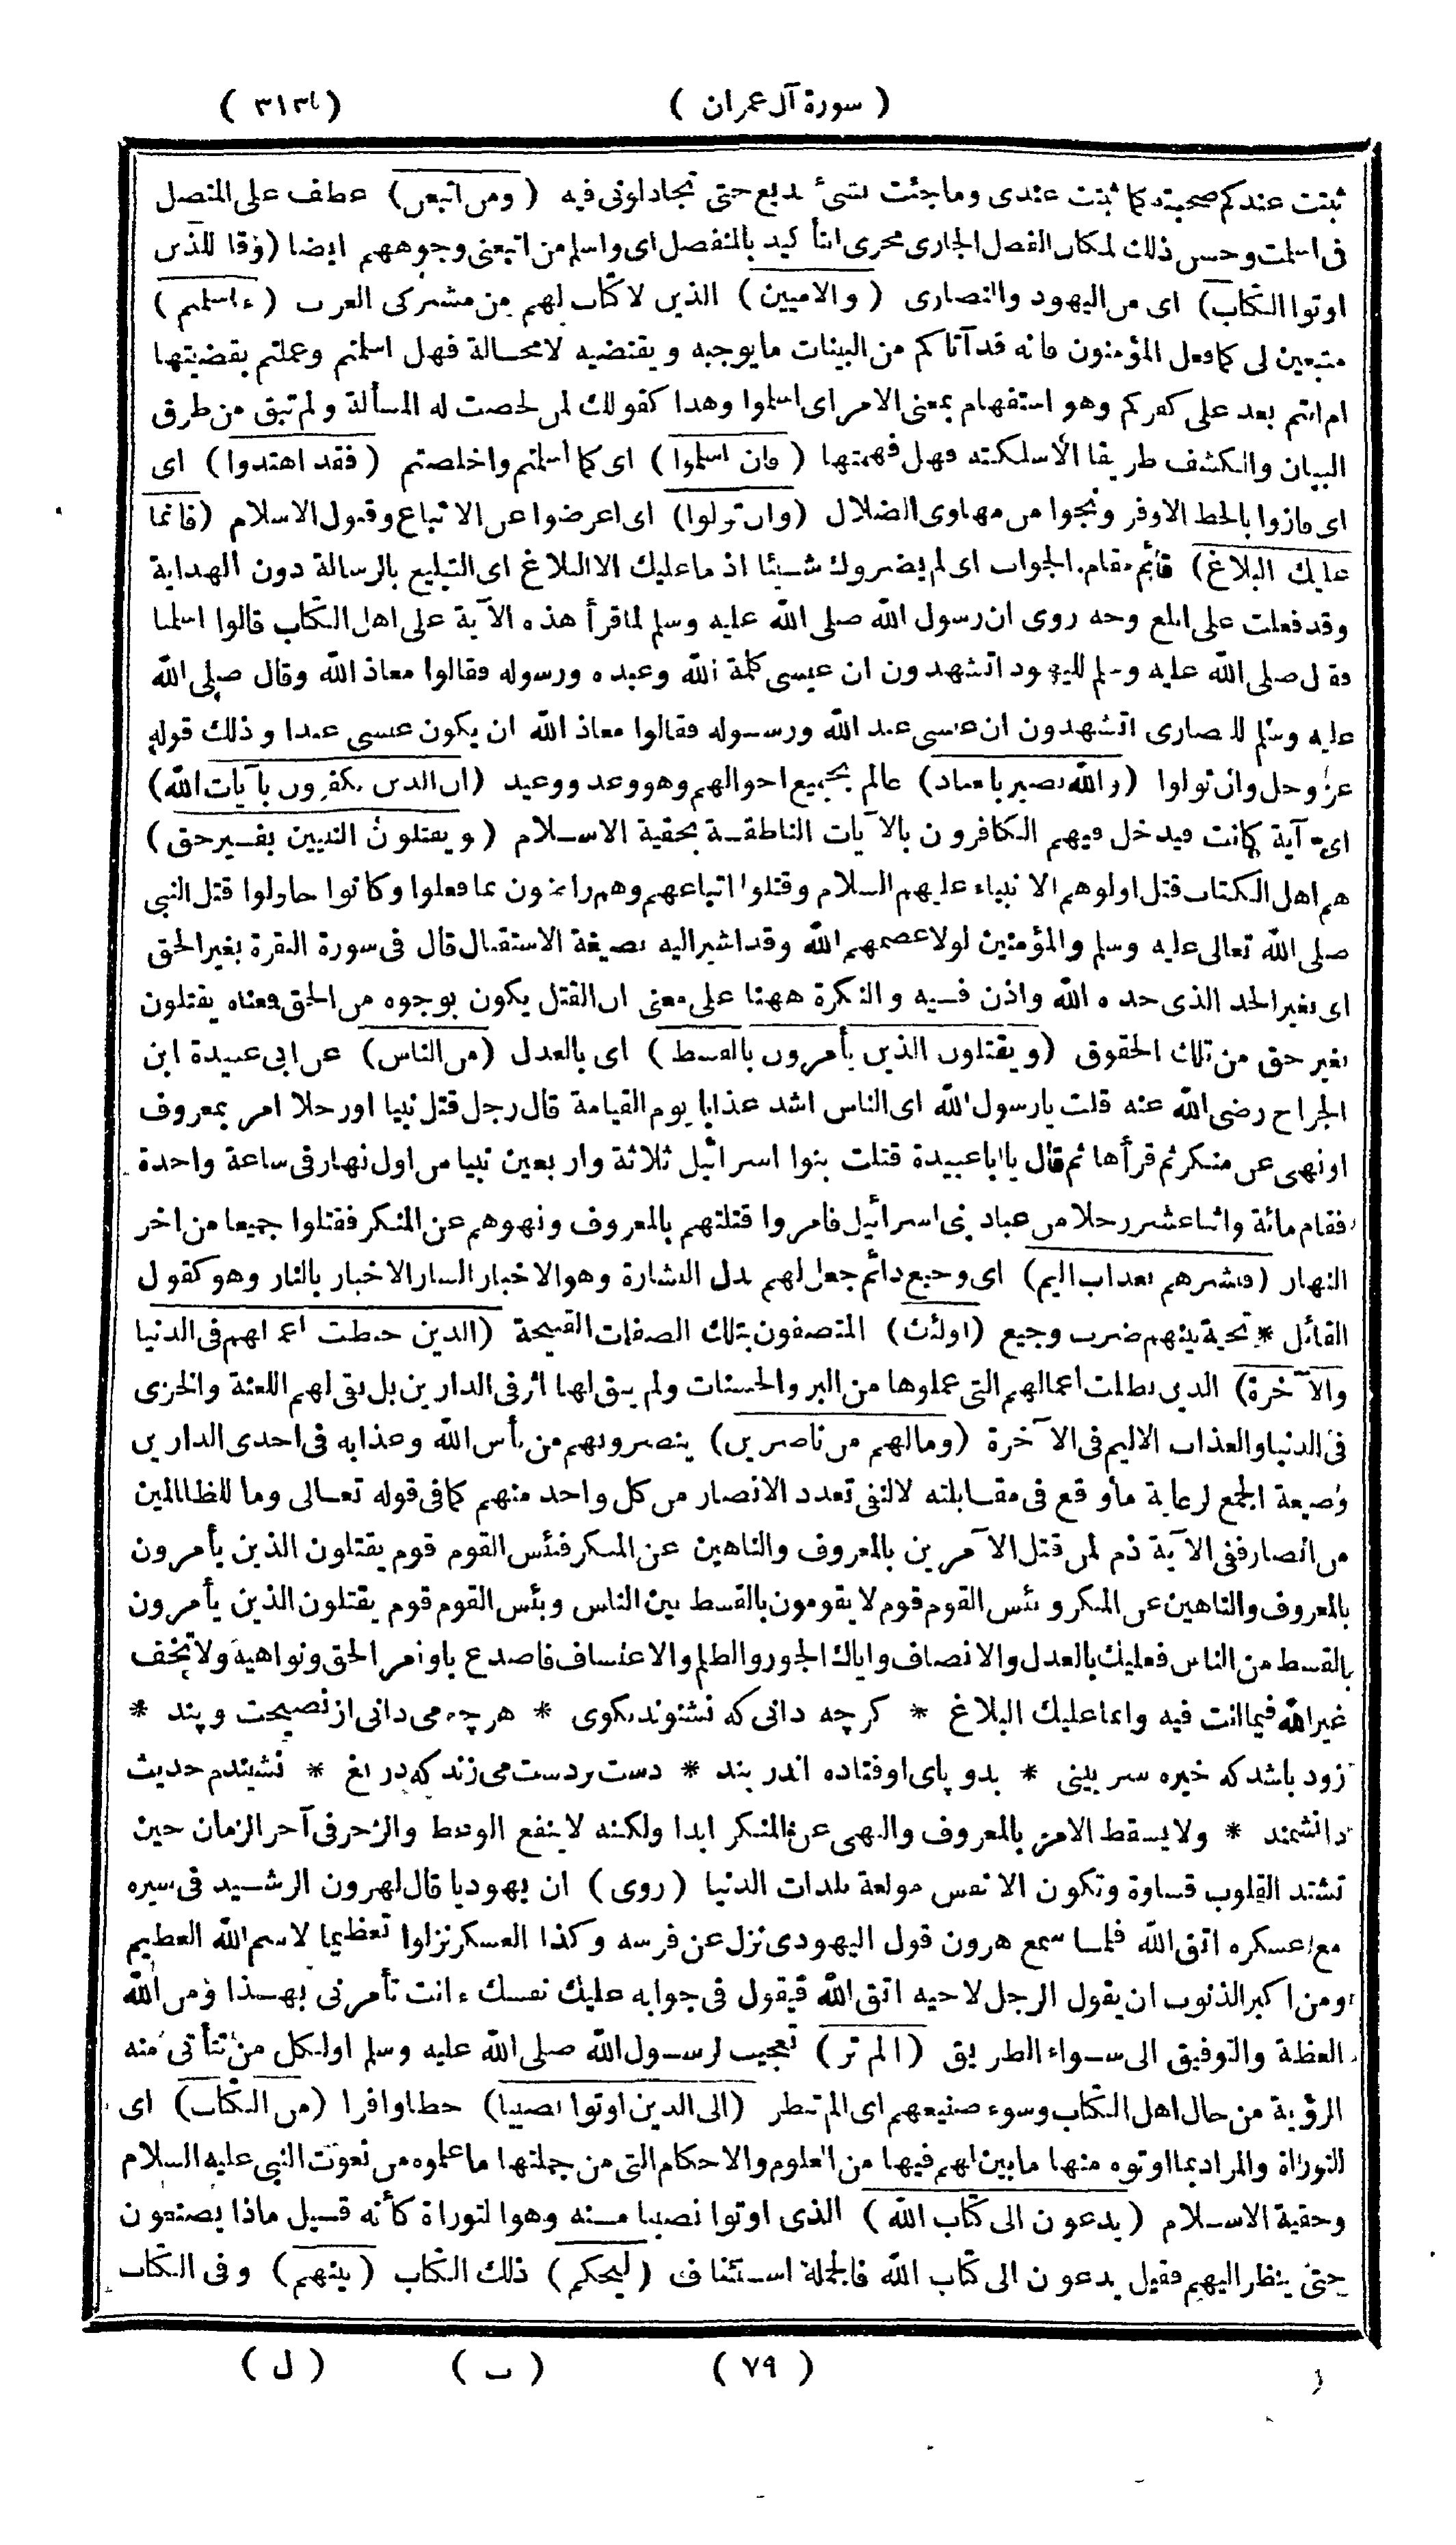 ( سورة آل عمران ) ( ٣١٣ )
ثبتت عندكم صحته كما ثبتت عندى وما جئت بشىء بديع حتى تجادلونى فيه (ومن اتبعن) عطف على المتصل
فى اسلمت وحسن ذلك لمكان الفصل الجارى مجرى التأكيد بالمنفصل اى واسلم من اتبعنى وجوههم ايضا (وقل للذين
اوتوا الكتاب) اى من اليهود والنصارى (والاميين) الذين لا كتاب لهم من مشركى العرب (ءاسلمتم)
متبعين لى كما فعل المؤمنون فانه قد آتاكم من البينات ما يوجبه ويقتضيه لا محالة فهل اسلمتم وعملتم بقضيتها
ام انتم بعد على كفركم وهو استفهام بمعنى الامر اى اسلموا وهذا كقولك لمن لخصت له المسألة ولم تبق من طرق
البيان والكشف طريقا الا سلكته فهل فهمتها (فان اسلموا) اى كما اسلمتم واخلصتم (فقد اهتدوا) اى
اى فازوا بالحظ الاوفر ونجوا من مهاوى الضلال (وان تولوا) اى اعرضوا عن الاتباع وقبول الاسلام (فانما
عليك البلاغ) قائم مقام الجواب اى لم يضروك شيئا اذ ما عليك الا البلاغ اى التبليغ بالرسالة دون الهداية
وقد فعلت على ابلغ وجه روى ان رسول الله صلى الله عليه وسلم لما قرأ هذه الآية على اهل الكتاب قالوا اسلمنا
فقال صلى الله عليه وسلم لليهود اتشهدون ان عيسى كلمة الله وعبده ورسوله فقالوا معاذ الله وقال صلى الله
عليه وسلم للنصارى اتشهدون ان عيسى عبد الله ورسوله فقالوا معاذ الله ان يكون عيسى عبدا وذلك قوله
عز وجل وان تولوا (والله بصير بالعباد) عالم بجميع احوالهم وهو وعد ووعيد (ان الذين يكفرون بآيات الله)
اى آية كانت فيدخل فيهم الكافرون بالآيات الناطقة بحقية الاسلام (ويقتلون النبيين بغير حق)
هم اهل الكتاب قتل اولوهم الانبياء عليهم السلام وقتلوا اتباعهم وهم راضون بما فعلوا وكانوا حاولوا قتل النبى
صلى الله تعالى عليه وسلم والمؤمنين لولا عصمهم الله وقد اشير اليه بصيغة الاستقبال قال فى سورة البقرة بغير الحق
اى بغير الحد الذى حده الله واذن فيه والنكرة ههنا على معنى ان القتل يكون بوجوه من الحق فمعناه يقتلون
بغير حق من تلك الحقوق (ويقتلون الذين يأمرون بالقسط) اى بالعدل (من الناس) عن ابى عبيدة ابن
الجراح رضى الله عنه قلت يا رسول الله اى الناس اشد عذابا يوم القيامة قال رجل قتل نبيا او رجلا امر بمعروف
او نهى عن منكر ثم قرأها ثم قال يا ابا عبيدة قتلت بنوا اسرائيل ثلاثة واربعين نبيا من اول نهار فى ساعة واحدة
فقام مائة واثنا عشر رجلا من عباد بنى اسرائيل فامروا قتلتهم بالمعروف ونهوهم عن المنكر فقتلوا جميعا من اخر
النهار (فبشرهم بعذاب اليم) اى وجيع دائم جعل لهم بدل البشارة وهو الاخبار السار الاخبار بالنار وهو كقول
القائل * تحية بينهم ضرب وجيع (اولئك) المتصفون بتلك الصفات القبيحة (الذين حبطت اعمالهم فى الدنيا
والآخرة) الذين بطلت اعمالهم التى عملوها من البر والحسنات ولم يبق لها اثر فى الدارين بل بقى لهم اللعنة والخزى
فى الدنيا والعذاب الاليم فى الآخرة (وما لهم من ناصرين) ينصرونهم من بأس الله وعذابه فى احدى الدارين
وصيغة الجمع لرعاية ما وقع فى مقابلته لا لنفى تعدد الانصار من كل واحد منهم كما فى قوله تعالى وما للظالمين
من انصار ففى الآية ذم لمن قتل الآمرين بالمعروف والناهين عن المنكر فبئس القوم قوم يقتلون الذين يأمرون
بالمعروف والناهين عن المنكر وبئس القوم قوم لا يقومون بالقسط بين الناس وبئس القوم قوم يقتلون الذين يأمرون
بالقسط من الناس فعليك بالعدل والانصاف واياك الجور والظلم والاعتساف فاصدع باوامر الحق ونواهيه ولا تخف
غير الله فيما انت فيه وانما عليك البلاغ * كرچه دانى كه نشنوند بكوى * هرچه مى دانى از نصيحت وپند *
زود باشد كه خيره سر بينى * بدو پاى اوفتاده اندر بند * دست بردست مى زند كه دريغ * نشنيدم حديث
دانشمند * ولا يسقط الامر بالمعروف والنهى عن المنكر ابدا ولكنه لا ينفع الوعظ والزجر فى آخر الزمان حين
تشتد القلوب قساوة وتكون الانفس مولعة بلذات الدنيا (روى) ان يهوديا قال لهرون الرشيد فى سيره
مع عسكره اتق الله فلما سمع هرون قول اليهودى نزل عن فرسه وكذا العسكر نزلوا تعظيما لاسم الله العظيم
ومن اكبر الذنوب ان يقول الرجل لاخيه اتق الله فيقول فى جوابه عليك نفسك ءانت تأمرنى بهذا ومن الله
العظة والتوفيق الى سواء الطريق (الم تر) تعجيب لرسول الله صلى الله عليه وسلم او لكل من تتأتى منه
الرؤية من حال اهل الكتاب وسوء صنيعهم اى الم تنظر (الى الذين اوتوا نصيبا) حظا وافرا (من الكتاب) اى
التوراة والمراد بما اوتوه منها ما بين لهم فيها من العلوم والاحكام التى من جملتها ما علموه من نعوت النبى عليه السلام
وحقية الاسلام (يدعون الى كتاب الله) الذى اوتوا نصيبا منه وهو التوراة كأنه قيل ماذا يصنعون
حتى ينظر اليهم فقيل يدعون الى كتاب الله فالجملة استئناف (ليحكم) ذلك الكتاب (بينهم) وفى الكتاب
( ٧٩ ) ( ب ) ( ل )